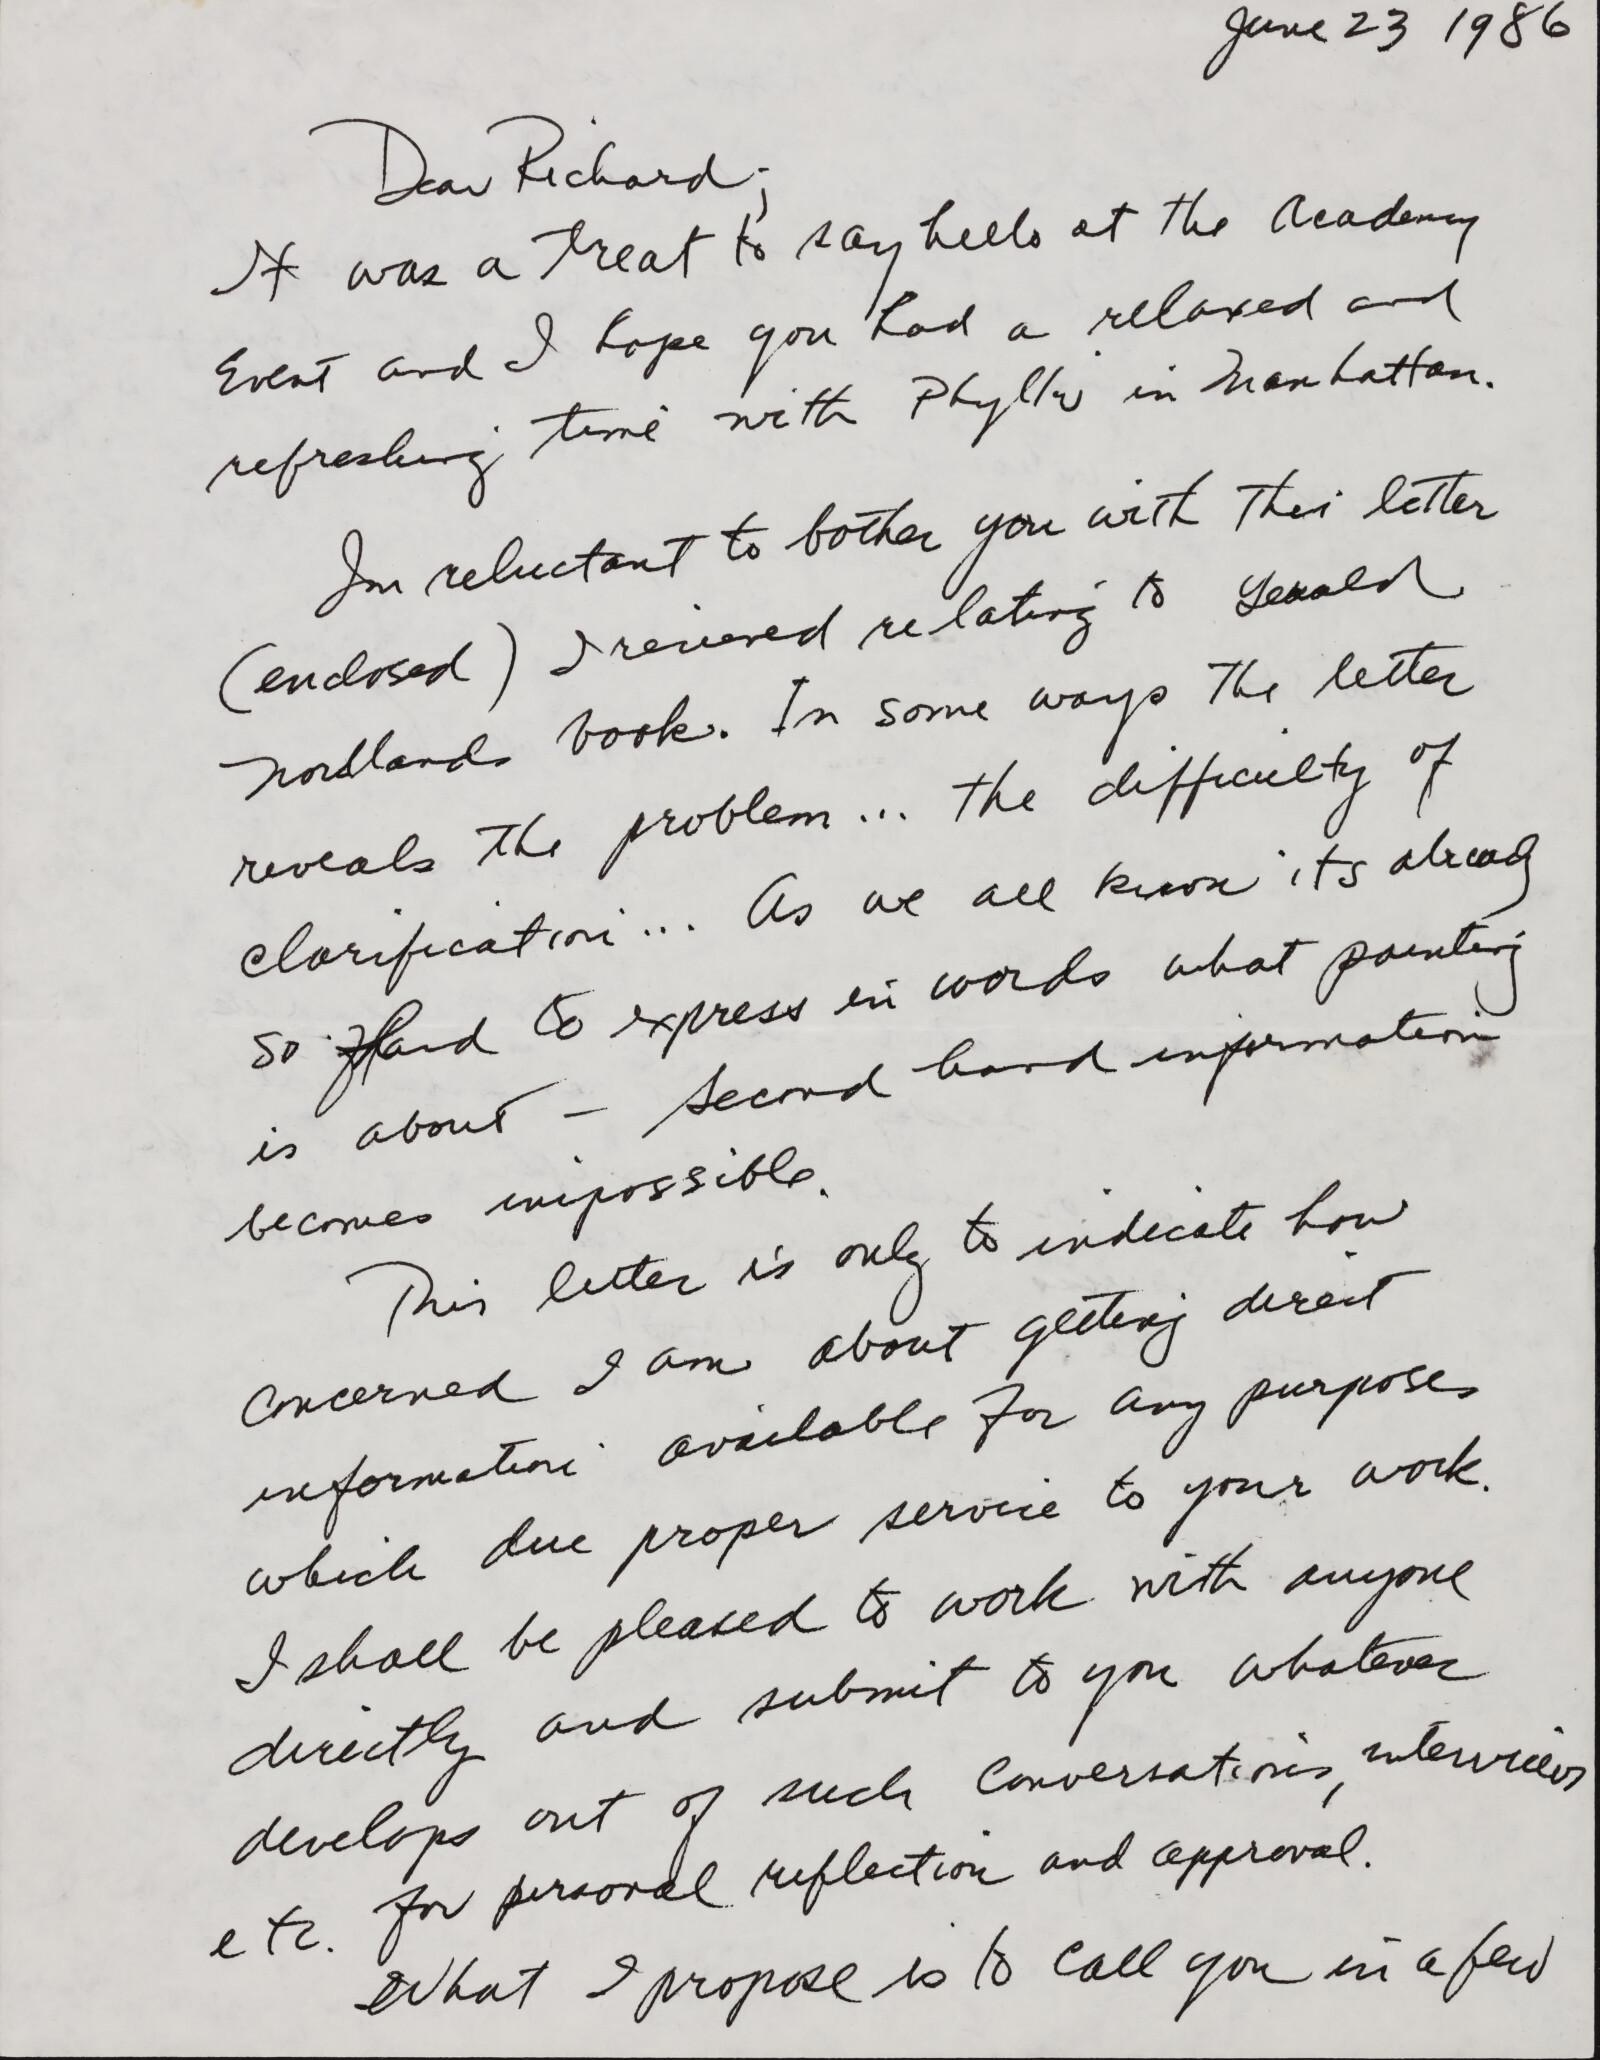 June 23 1986
Dear Richard;
It was a treat to say hello at the Academy
Event and I hope you had a relaxed and
refreshing time with Phyllis in Manhattan.
Im reluctant to bother you with this letter
(enclosed) I recieved relating to Gerald
Nordlands book. In some ways the letter
reveals the problem... the difficulty of
clarification... As we all know its already
so hard to express in words what painting
is about – second hand information
becomes impossible.
This letter is only to indicate how
concerned I am about getting direct
information available for any purposes
which due proper service to your work.
I shall be pleased to work with anyone
directly and submit to you whatever
develops out of such conversations, interviews
etc. for personal reflection and approval.
What I propose is to call you in a few